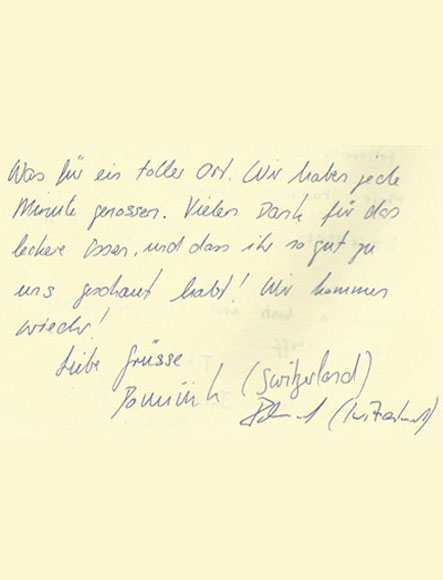 Was für ein toller Ort. Wir haben jede
Minute genossen. Vielen Dank für das
leckere Essen, und dass ihr so gut zu
uns geschaut habt! Wir kommen
wieder!
Liebe Grüsse
Dominik (Switzerland)
(Switzerland)